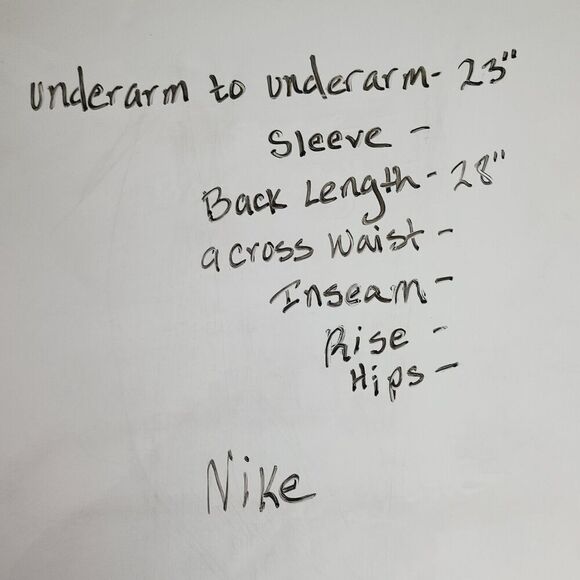 underarm to underarm- 23"
Sleeve -
Back Length - 28"
across Waist -
Inseam -
Rise -
Hips -
Nike